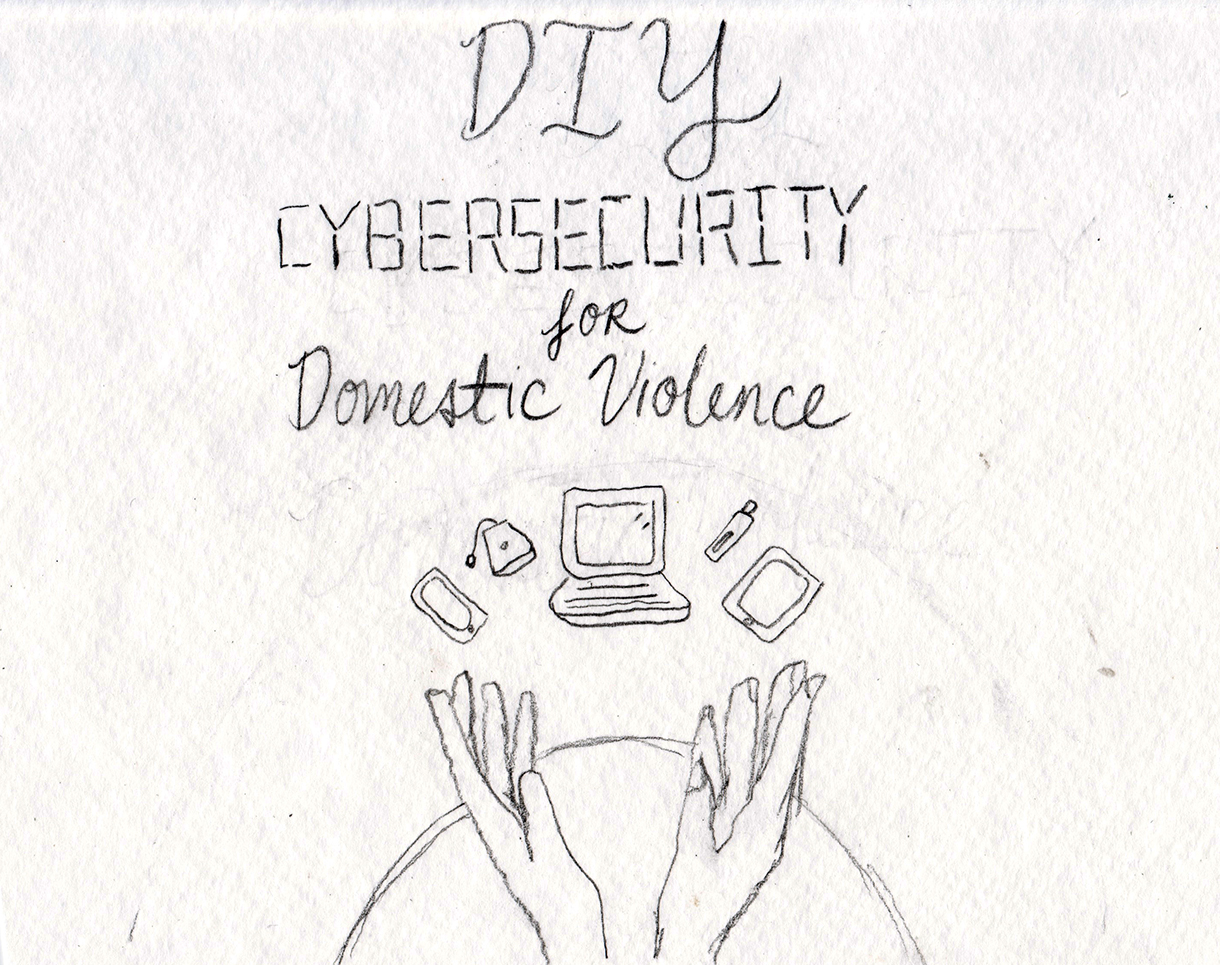 DIY
CYBERSECURITY
for
Domestic Violence